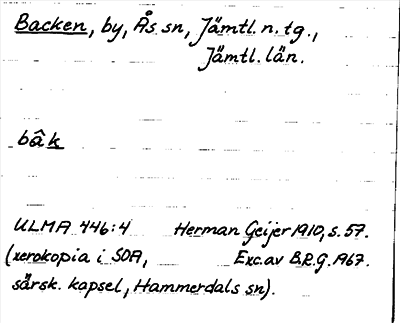 Backen, by, Ås sn, Jämtl. n. tg.,
Jämtl. län.
bâk
ULMA 446:4 Herman Geijer 1910, s. 57.
(xerokopia i SOA, Exc. av B.R.G. 1967.
särsk. kapsel, Hammerdals sn).